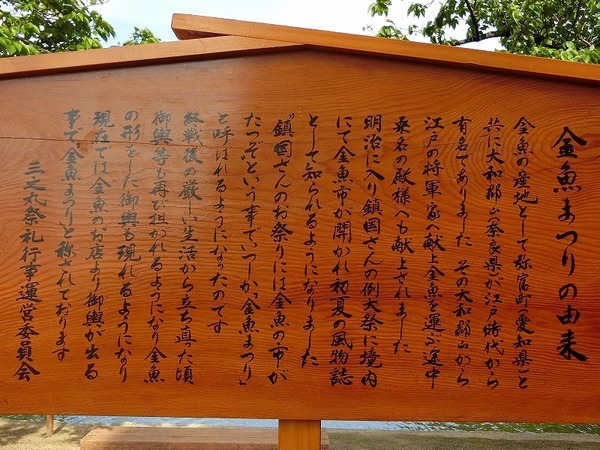 金魚まつりの由来
金魚の産地として弥富町(愛知県)と
共に大和郡山(奈良県)が江戸時代から
有名でありました その大和郡山から
江戸の将軍家へ献上金魚を運ぶ途中
桑名の殿様へも献上されました
明治に入り鎮国さんの例大祭に境内
にて金魚市が開かれ初夏の風物誌
として知られるようになりました
"鎮国さんのお祭りには金魚の市が
たつぞ"という事で、いつしか「金魚まつり」
と呼ばれるようになったのです
終戦後の厳しい生活から立ち直った頃
御輿等も再び担がれるようになり金魚
の形をした御輿も現れるようになり
現在では金魚のお店より御輿が出る
事で金魚まつりと称されております
三之丸祭礼行事運営委員会